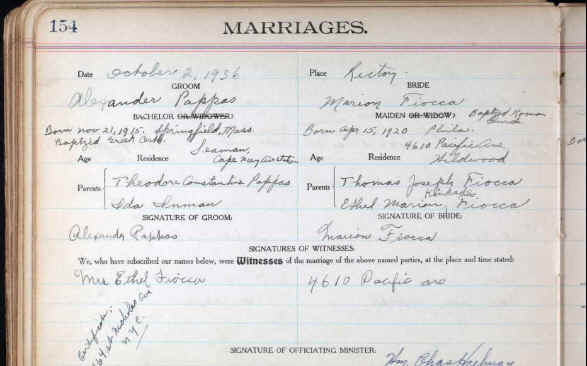 154
MARRIAGES.
Date October 2, 1936 Place Rectory.
GROOM BRIDE
Alexander Pappas Marion Fiocca
BACHELOR OR WIDOWER: MAIDEN OR WIDOW: Baptized Roman
Born Nov 21, 1915. Springfield, Mass. Born Apr 15, 1920 Phila.
Baptized Greek Cath. Seaman, 4610 Pacific Ave,
Age Residence Cape May Age Residence Wildwood
Parents Theodore Constantine Pappas Parents Thomas Joseph Fiocca
Ida Inman Ethel Marion Fiocca
SIGNATURE OF GROOM: SIGNATURE OF BRIDE:
Alexander Pappas Marion Fiocca
SIGNATURES OF WITNESSES.
We, who have subscribed our names below, were Witnesses of the marriage of the above named parties, at the place and time stated:
Mrs Ethel Fiocca 4610 Pacific ave
St Nicholas Ave
N.Y.C.
SIGNATURE OF OFFICIATING MINISTER: